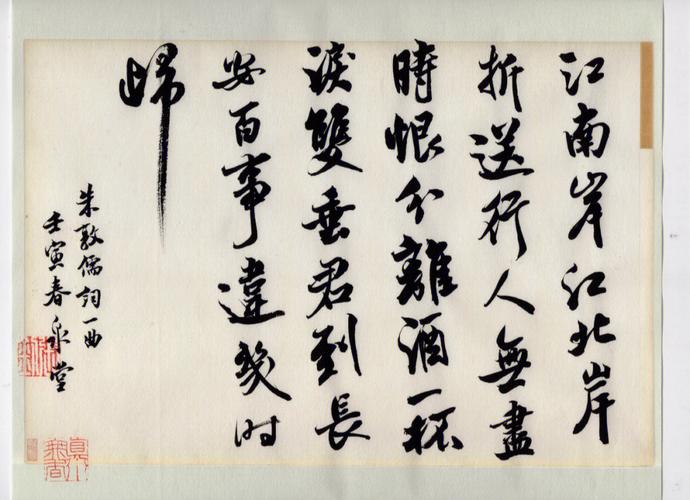 江南岸江北岸
折送行人無盡
時恨分離酒一杯
淚雙垂君到長
安百事違幾时
歸
朱敦儒詞一曲
壬寅春泉堂